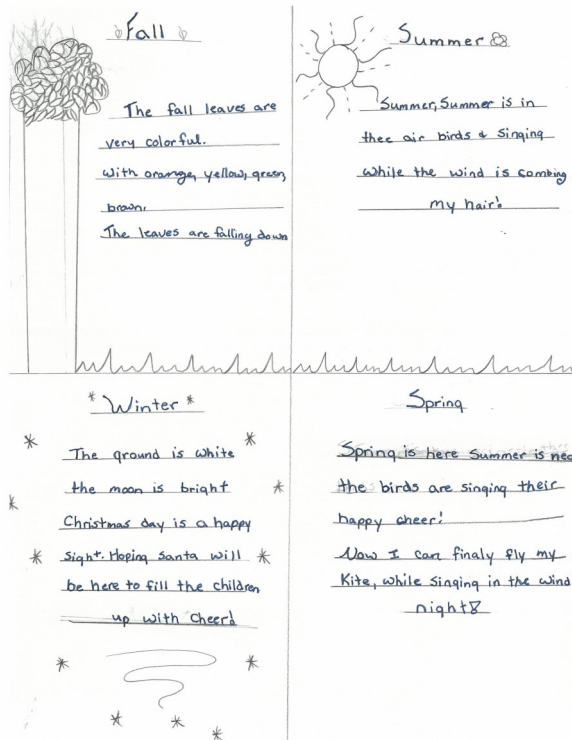 Fall
The fall leaves are
very colorful.
with orange, yellow, green,
brown.
The leaves are falling down
Summer
Summer, Summer is in
thee air birds & singing
while the wind is combing
my hair!
Winter
The ground is white
the moon is bright
Christmas day is a happy
sight. Hoping Santa will
be here to fill the children
up with Cheer!
Spring
Spring is here Summer is nea
the birds are singing their
happy cheer!
Now I can finaly fly my
Kite, while singing in the wind
night